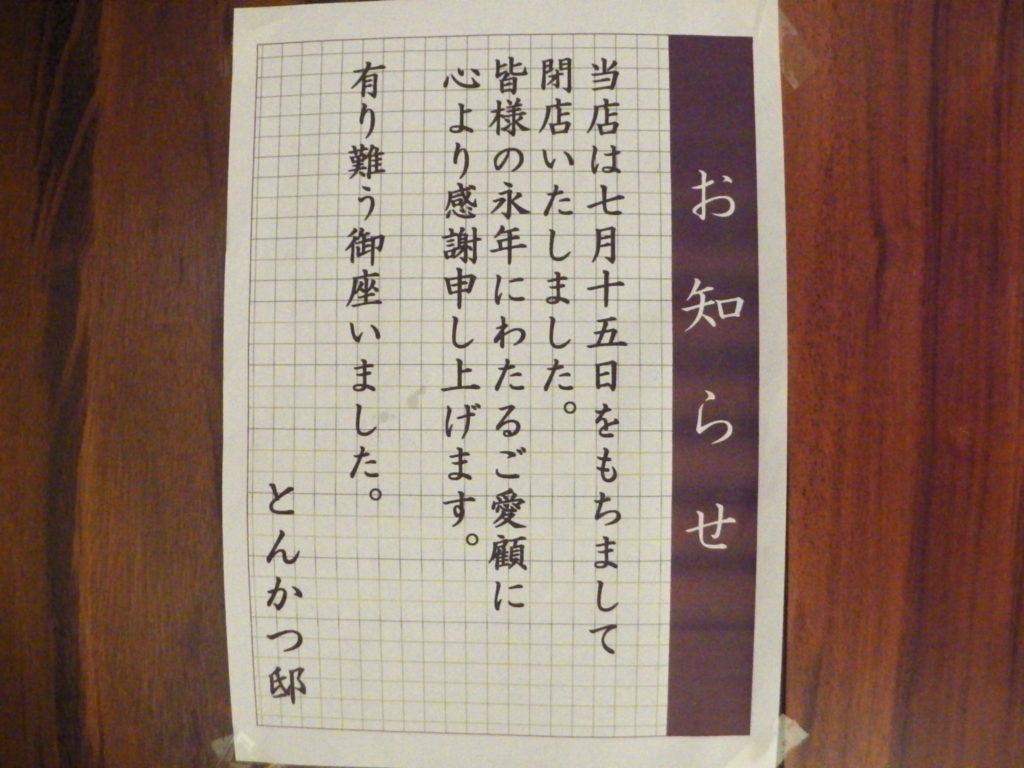 お知らせ
当店は七月十五日をもちまして
閉店いたしました。
皆様の永年にわたるご愛顧に
心より感謝申し上げます。
有り難う御座いました。
とんかつ邸